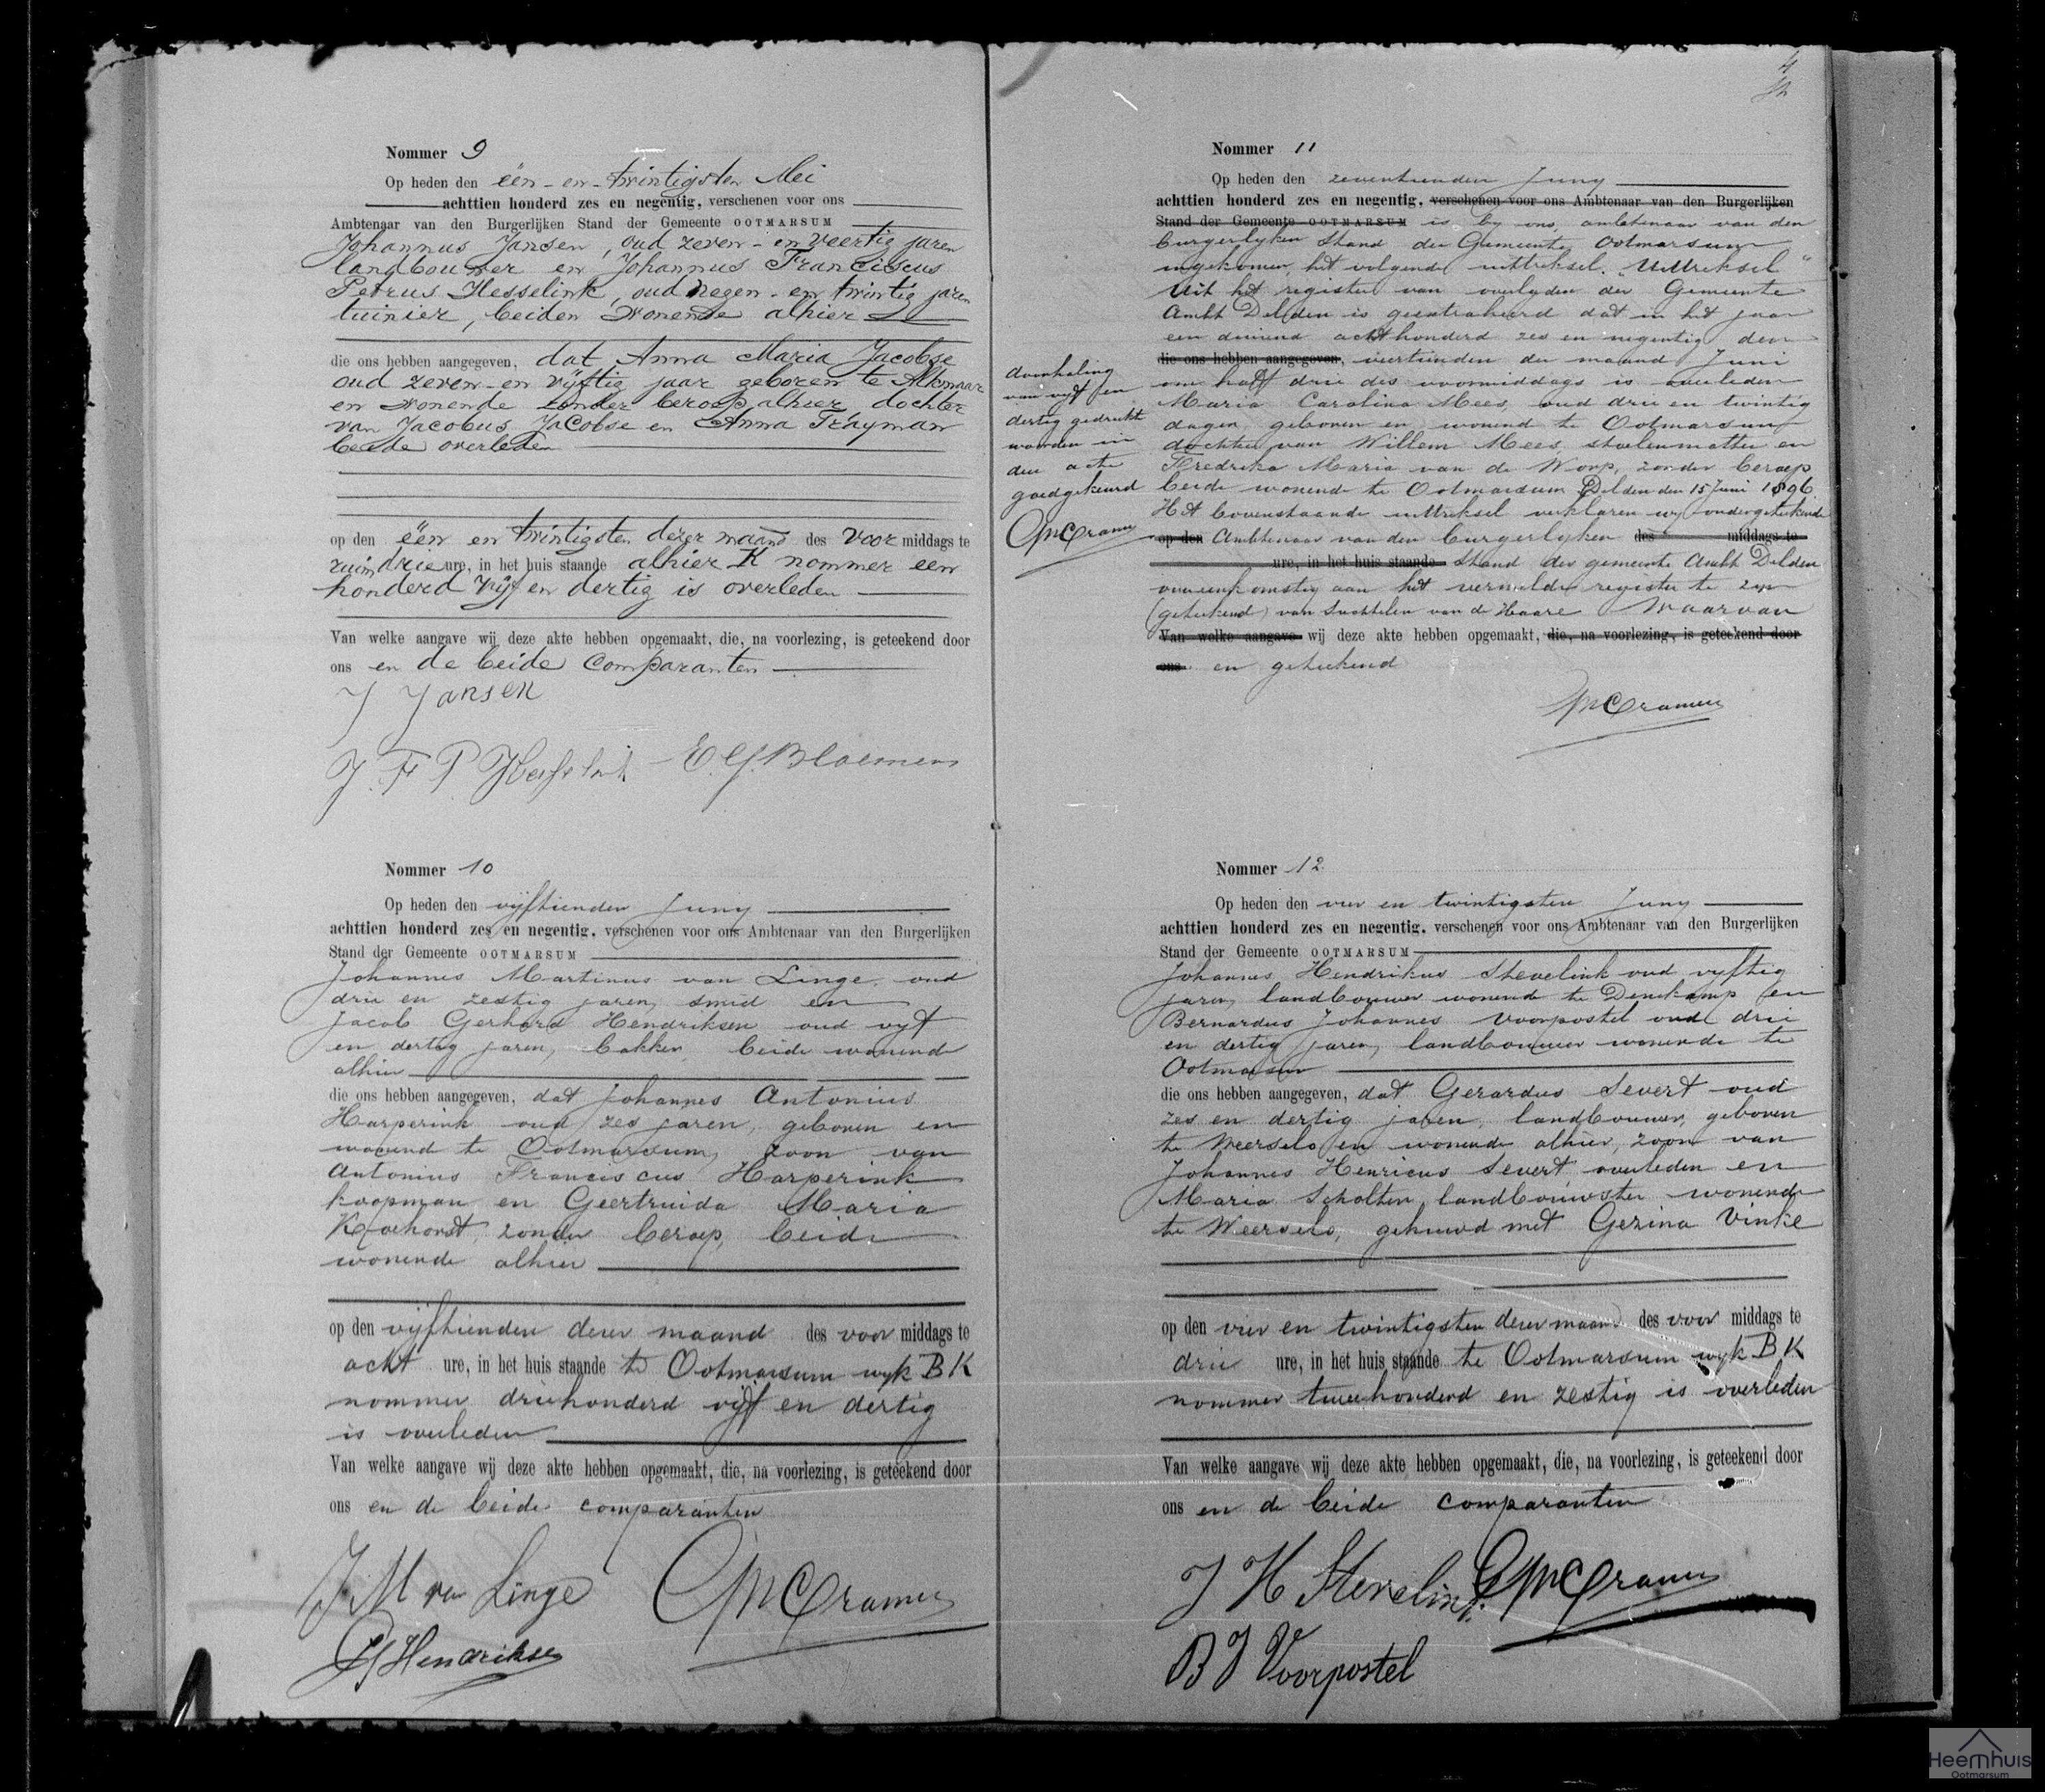 Nommer 9
Op heden den één-en-twintigsten Mei
achttien honderd zes en negentig, verschenen voor ons
Ambtenaar van den Burgerlijken Stand der Gemeente OOTMARSUM
Johannus Jansen, oud zeven-en veertig jaren
landbouwer en Johannus Franciscus
Petrus Hesselink, oud negen-en twintig jaren
tuinier, beiden wonende alhier
die ons hebben aangegeven, dat Anna Maria Jacobse
oud zeven-en vijftig jaar geboren te Alkmaar
en wonende zonder beroep alhier, dochter
van Jacobus Jacobse en Anna Trayman
beide overleden
op den één en twintigsten dezer maand des voor middags te
ruim drie ure, in het huis staande alhier K nommer een
honderd vijf en dertig is overleden
Van welke aangave wij deze akte hebben opgemaakt, die, na voorlezing, is geteekend door
ons en de beide comparanten
J Jansen
J. F P Hesselink E. G. Bloemen
Nommer 10
Op heden den vijftienden Juny
achttien honderd zes en negentig, verschenen voor ons Ambtenaar van den Burgerlijken
Stand der Gemeente OOTMARSUM
Johannes Martinus van Linge, oud
drie en zestig jaren, smid en
Jacob Gerhard Hendriksen oud vijf
en dertig jaren, bakker, beide wonende
alhier
die ons hebben aangegeven, dat Johannes Antonius
Harperink oud zes jaren, geboren en
wonend te Ootmarsum, zoon van
Antonius Franciscus Harperink
koopman en Geertruida Maria
Koehorst, zonder beroep, beide
wonende alhier
op den vijftienden dezer maand des voor middags te
acht ure, in het huis staande te Ootmarsum wijk BK
nommer driehonderd vijf en dertig
is overleden
Van welke aangave wij deze akte hebben opgemaakt, die, na voorlezing, is geteekend door
ons en de beide comparanten
J M van Linge GMCramer
JG Hendriksen
4
Nommer 11
Op heden den zeventienden Juny
achttien honderd zes en negentig, verschenen voor ons Ambtenaar van den Burgerlijken
Stand der Gemeente OOTMARSUM is by ons, ambtenaar van den
burgerlyken Stand der Gemeente Ootmarsum
ingekomen, het volgende uittreksel. "Uittreksel"
Uit het register van overlyden der Gemeente
Ambt Delden is geextraheerd dat in het jaar
een duizend achthonderd zes en negentig den
die ons hebben aangegeven, veertienden der maand Juni
om half drie des voormiddags is overleden
Maria Carolina Mees, oud drie en twintig
dagen, geboren en wonend te Ootmarsum
dochter van Willem Mees, stoelenmatter en
Fredrika Maria van de Worp, zonder beroep
beide wonende te Ootmarsum Delden den 15 Juni 1896
Het bovenstaande uittreksel verklaren wy ondergeteekende
op den Ambtenaar van den burgerlyken des middags te
ure, in het huis staande Stand der gemeente Ambt Delden
overeenkomstig aan het vermelde register te zyn
(geteekend) van Suchtelen van de Haare Waarvan
Van welke aangave wij deze akte hebben opgemaakt, die, na voorlezing, is geteekend door
ons en geteekend
GMCramer
doorhaling
van vyf en
dertig gedrukte
woorden in
den acte
goedgekeurd
GMCramer
Nommer 12
Op heden den vier en twintigsten Juny
achttien honderd zes en negentig, verschenen voor ons Ambtenaar van den Burgerlijken
Stand der Gemeente OOTMARSUM
Johannes Hendrikus Stevelink oud vyftig
jaren, landbouwer wonende te Denekamp en
Bernardus Johannes Voorpostel oud drie
en dertig jaren, landbouwer wonende te
Ootmarsum
die ons hebben aangegeven, dat Gerardus Severt oud
zes en dertig jaren, landbouwer, geboren
te Weerselo en wonende alhier, zoon van
Johannes Henricus Severt overleden en
Maria Scholten, landbouwster wonende
te Weerselo, gehuwd met Gezina Vinke
op den vier en twintigsten dezer maand des voor middags te
drie ure, in het huis staande te Ootmarsum wyk BK
nommer tweehonderd en zestig is overleden
Van welke aangave wij deze akte hebben opgemaakt, die, na voorlezing, is geteekend door
ons en de beide comparanten
J H Stevelink GMCramer
B J Voorpostel
Heemhuis
Ootmarsum